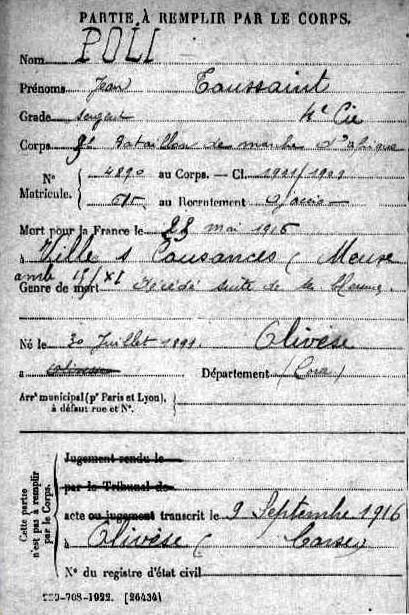 PARTIE À REMPLIR PAR LE CORPS.
Nom POLI
Prénoms Jean Toussaint
Grade Sergent 4e Cie
Corps Bataillon de marche d'Afrique
Nº Matricule. 4890 au Corps. — Cl.
au Recrutement Ajaccio
Mort pour la France le mai 1916
à Ville s Cousances (Meuse
amb 15/XI
Genre de mort Décédé suite de ses blessures
Né le 30 Juillet Olivèse
à Département (Corse)
Arrt municipal (pr Paris et Lyon),
à défaut rue et Nº.
Cette partie n'est pas à remplir par le Corps.
Jugement rendu le
par le Tribunal de
acte ou jugement transcrit le 9 Septembre 1916
à Olivèse (Corse)
Nº du registre d'état civil
-708-1922. [26434]